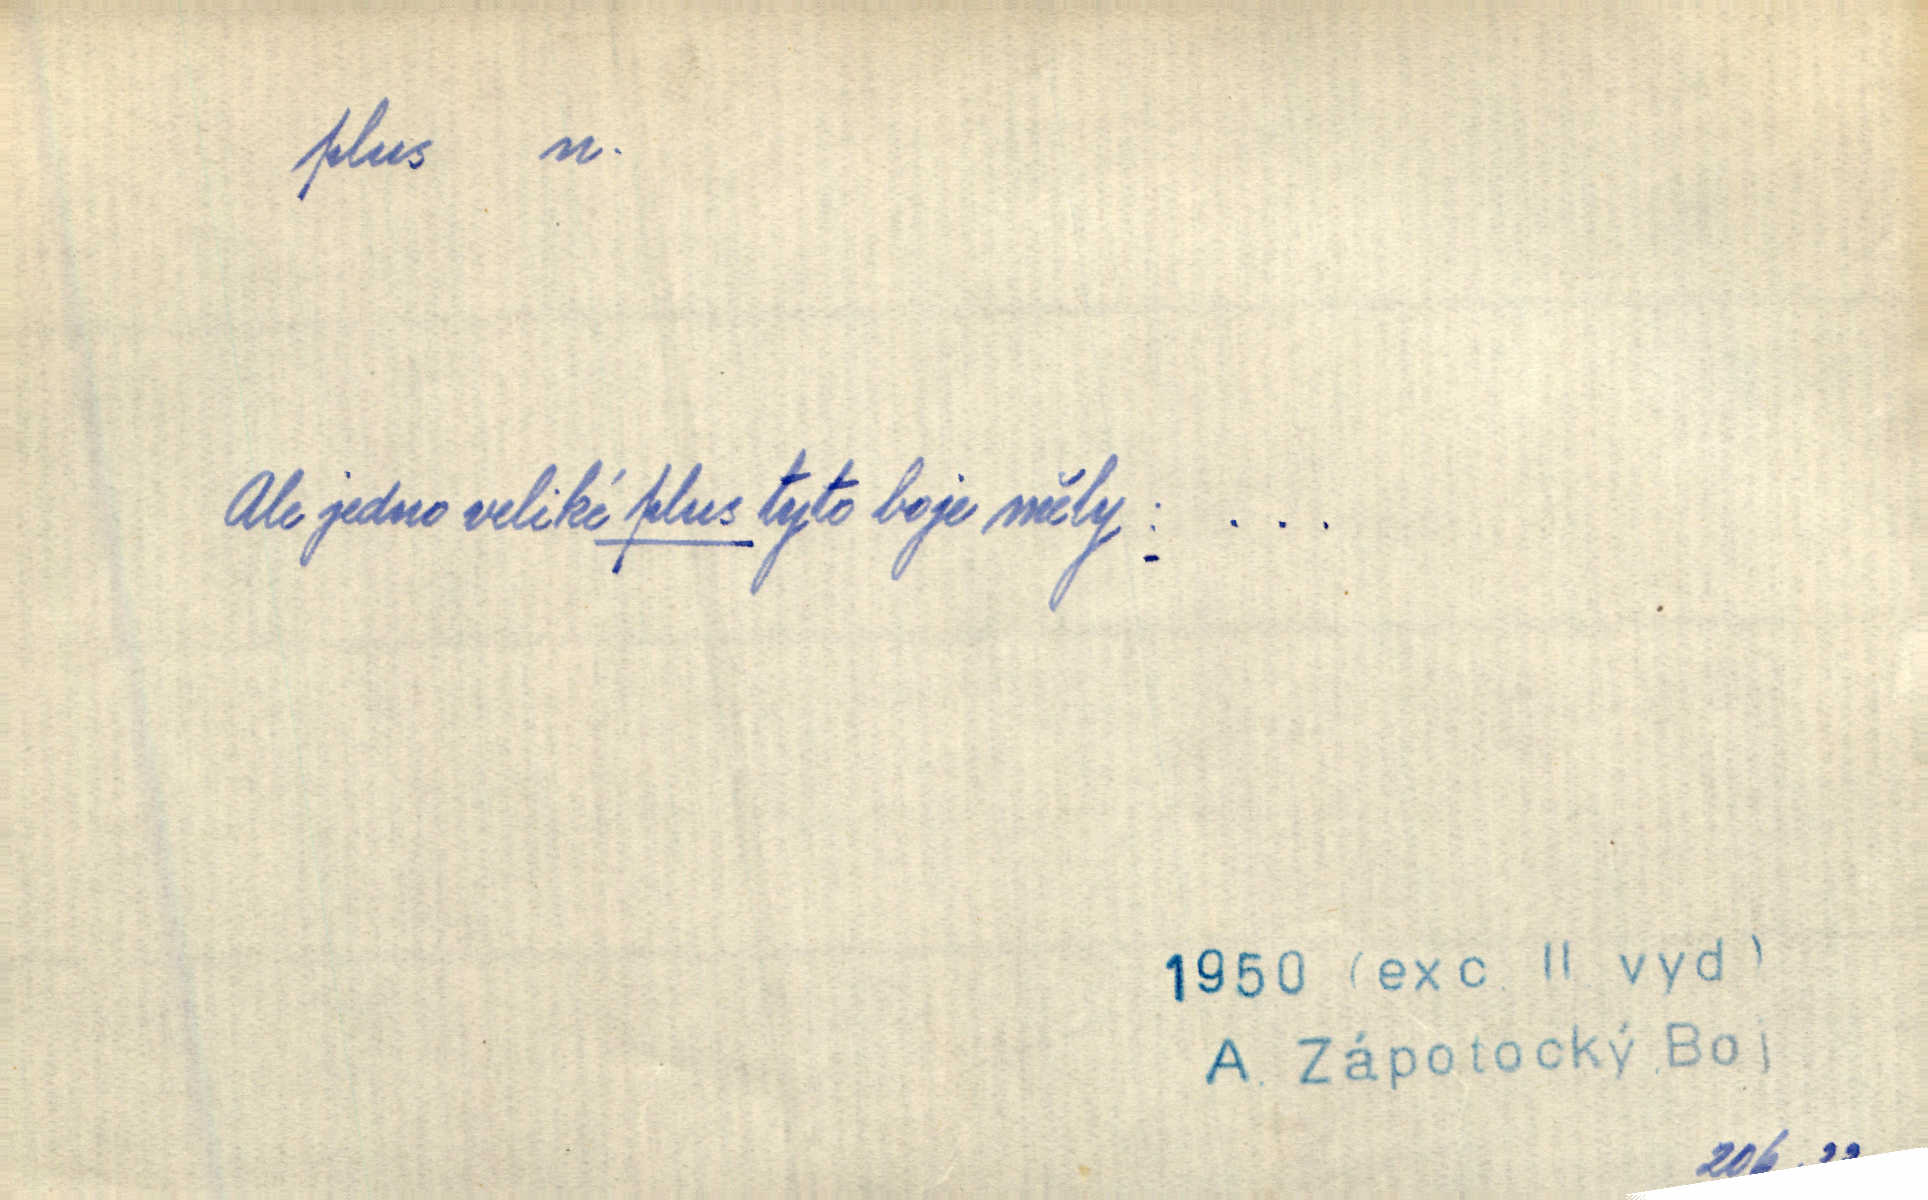 plus n.
Ale jedno veliké plus tyto boje měly: ...
1950 (exc. II vyd)
A. Zápotocký, Boj